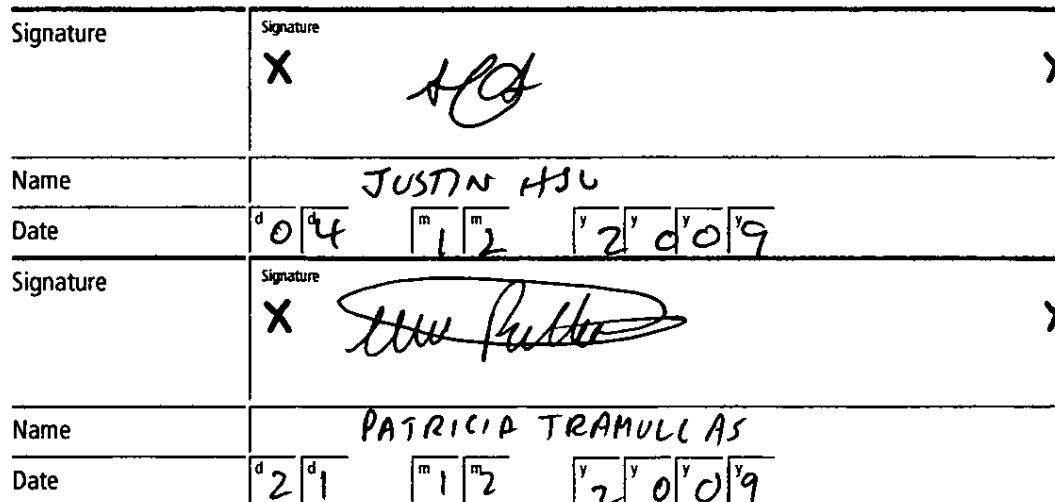 Signature Signature
X
Name JUSTIN HSU
Date d0 d4 m1 m2 y2 y0 y0 y9
Signature Signature
X
Name PATRICIA TRAMULLAS
Date d2 d1 m1 m2 y2 y0 y0 y9